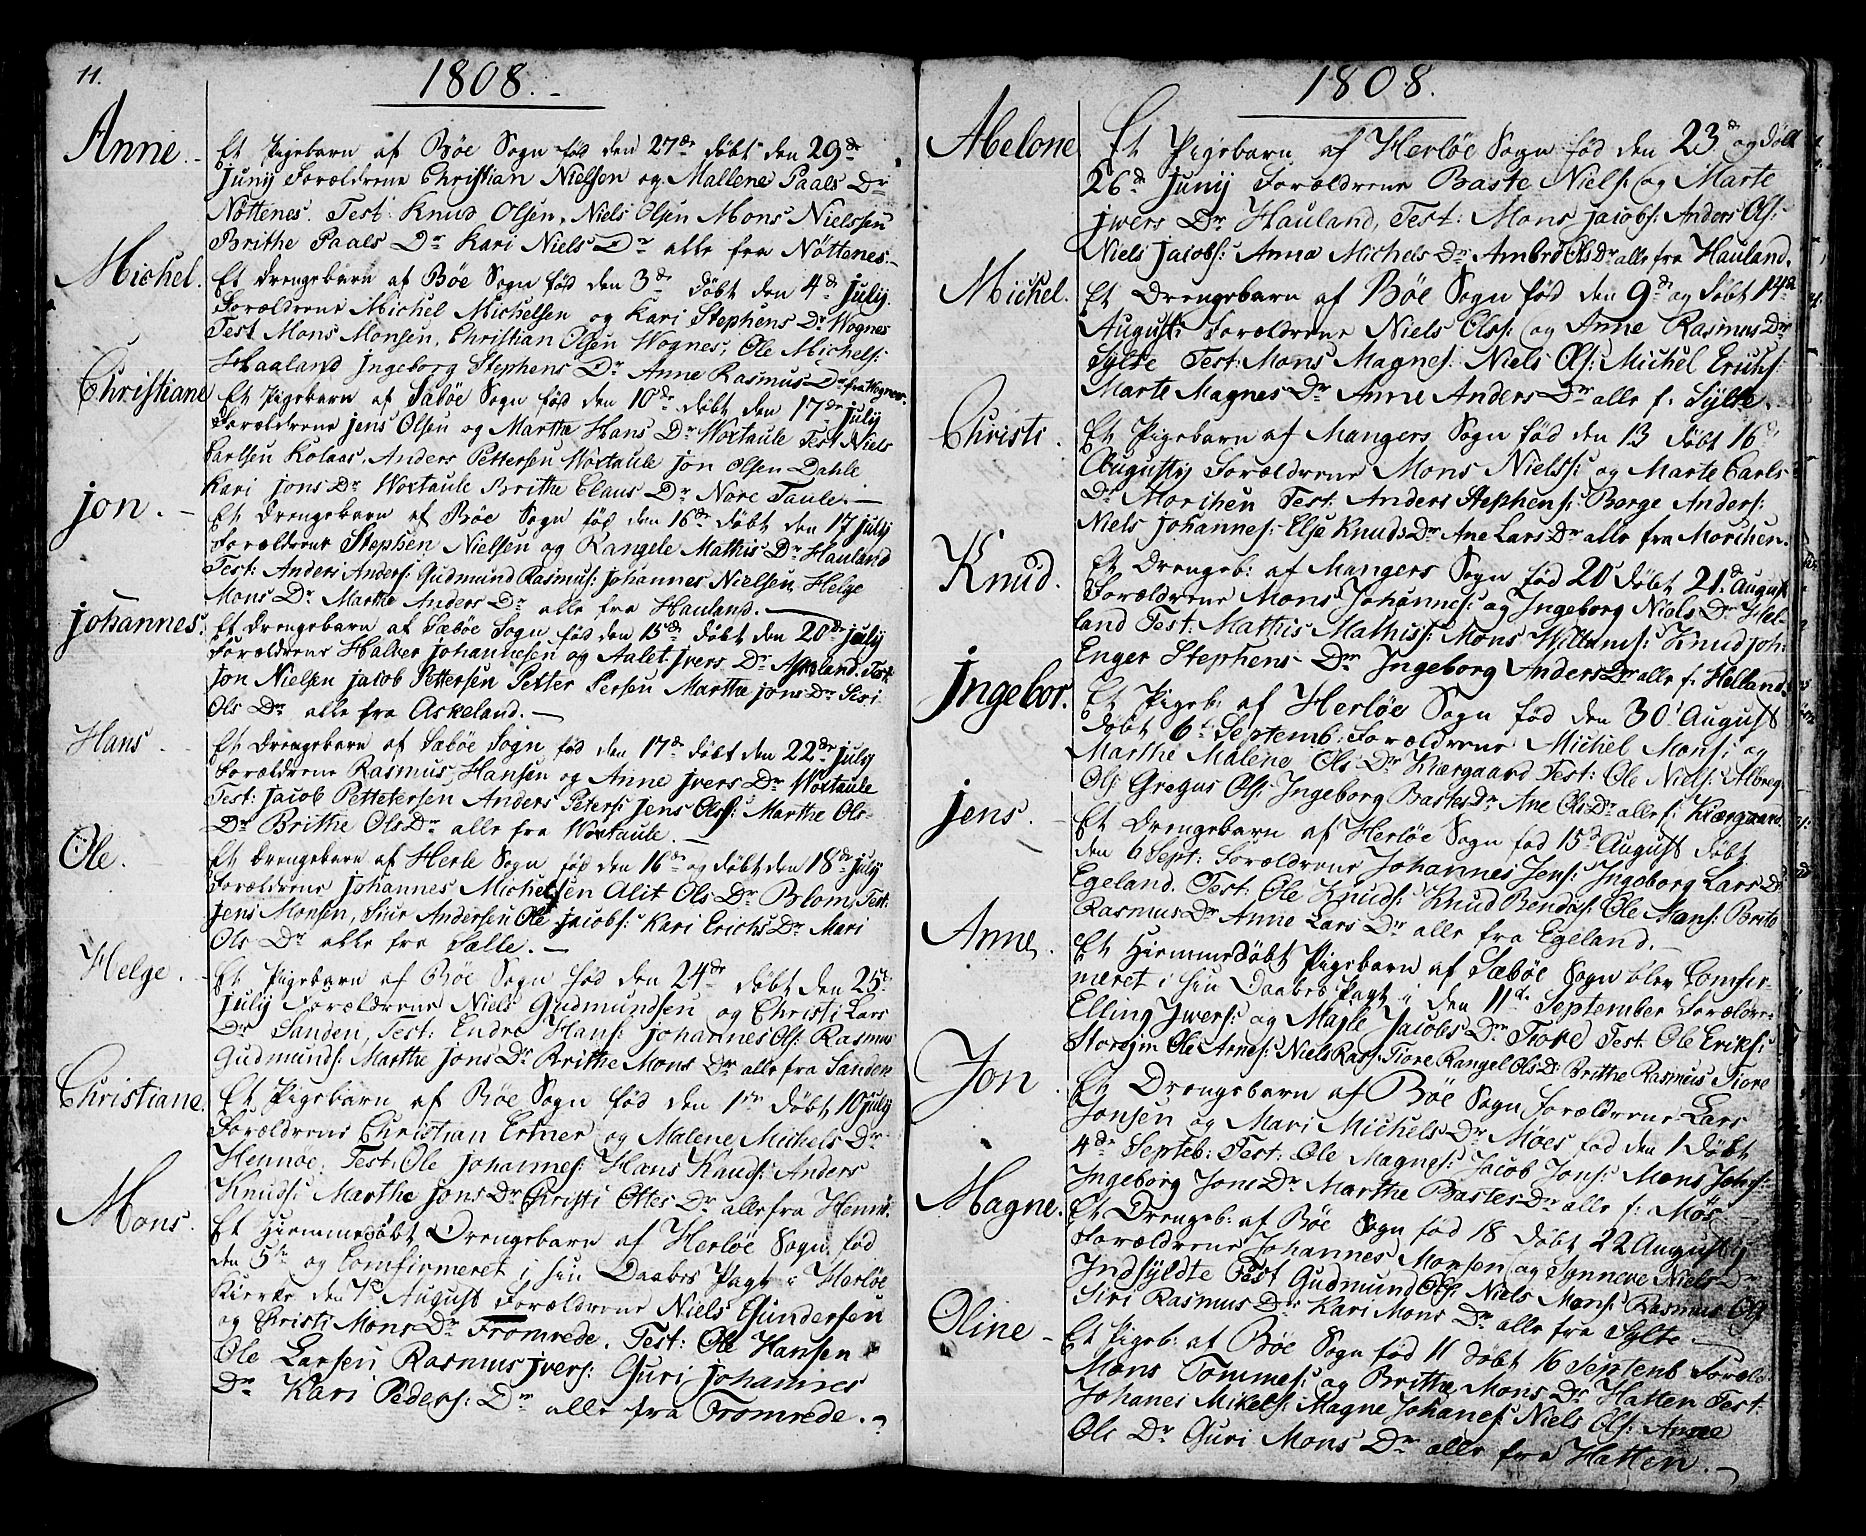 11.
1808.
Anne.
Et Pigebarn af Bøe Sogn fød den 27de døbt den 29de
Junij Forældrene Christian Nielsen og Mallene Paals Dr
Nøttenes. Test: Knud Olsen, Niels Olsen Mons Nielssen
Brithe Paals Dr Kari Niels Dr alle fra Nøttenes.
Michel.
Et Drengebarn af Bøe Sogn fød den 3de døbt den 4de July.
Forældrene Michel Michelsen og Kari Stephens Dr Wognes
Test Mons Monsen, Christian Olsen Wognes, Ole Michels:
Haaland Ingeborg Stephens Dr Anne Rasmus Dr fra Wognes.
Christiane
Et Pigebarn af Sæbøe Sogn fød den 10de døbt den 17de July
Forældrene Jens Olsen og Marthe Hans Dr Woxtaule Test Niels
Carlsen Kolaas, Anders Pettersen Woxtaule Jon Olsen Dahle
Kari Jons Dr Woxtaule Brithe Claus Dr Nore Taule.
Jon.
Et Drengebarn af Bøe Sogn fød den 16de døbt den 17 July
Forældrene Stephen Nielsen og Rangele Mathis Dr Hauland
Test: Anders Anders: Gudmund Rasmus: Johannes Nielsen Helge
Mons Dr Marthe Anders Dr alle fra Hauland.
Johannes.
Et Drengebarn af Sæbøe Sogn fød den 15de døbt den 20de July
Forældrene Halver Johannesen og Aalet Jvers Dr Askeland. Test
Jon Nielsen Jacob Pettersen Petter Persen Marthe Jons Dr Siri
Ols Dr alle fra Askeland.
Hans
Et Drengebarn af Sæbøe Sogn fød den 17de døbt den 22de July
Forældrene Rasmus Hansen og Anne Jvers Dr Woxtaule
Test: Jacob Pettetersen Anders Peters: Jens Ols: Marthe Ols
Dr Brithe Ols Dr alle fra Woxtaule.
Ole.
Et Drengebarn af Herle Sogn fød den 16de og døbt den 18de July
Forældrene Johannes Michelsen Alit Ols Dr Blom, Test:
Jens Monsen, Siur Andersen Ole Jacobs: Kari Erichs Dr Mari
Ols Dr alle fra Sælle.
Helge.
Et Pigebarn af Bøe Sogn fød den 24de døbt den 25de
July Forældrene Niels Gudmundsen og Christi Lars
Dr Sanden, Test: Endre Hans: Johannes Ols: Rasmus
Gudmunds: Marthe Jons Dr Brithe Mons Dr alle fra Sanden
Christiane.
Et Pigebarn af Bøe Sogn fød den 1ste døbt 10 July
Forældrene Christian Ermer og Malene Michels Dr
Hennøe. Test: Ole Johannes: Hans Knuds: Anders
Knuds: Marthe Jons Dr Christi Ottes Dr alle fra Hennø.
Mons.
Et Hiemmedøbt Drengebarn af Herløe Sogn fød
den 5te og Comfirmeret i sin Daabes Pagt i Herløe
Kierke den 7de August Forældrene Niels Gundersen
og Christi Mons Dr Fromrede. Test: Ole Hansen
Ole Larsen Rasmus Jvers: Guri Johannes
Dr Kari Peders: Dr alle fra Fromrede.
1808.
Abelone
Et Pigebarn af Herløe Sogn fød den 23de og døbt
26de Junij Forældrene Baste Niels: og Marte
Jwers Dr Hauland, Test: Mons Jacobs: Anders Ols:
Niels Jacobs: Anna Michels Dr Ambrø Ols Dr alle fra Hauland.
Michel.
Et Drengebarn af Bøe Sogn fød den 9de og døbt 14de
August: Forældrene Niels Ols: og Anne Rasmus Dr
Sylte Test: Mons Magnes: Niels Ols: Michel Erichs:
Marte Magnes Dr Anne Anders Dr alle f. Sylte.
Christi.
Et Pigebarn af Mangers Sogn fød den 13 døbt 16de
Augustij Forældrene Mons Niels: og Marte Carls
Dr Morchen Test: Anders Stephens: Borge Anders:
Niels Johannes: Elje Knuds Dr Ane Lars Dr alle fra Morchen.
Knud.
Et Drengeb: af Mangers Sogn fød 20de døbt 21de August
Forældrene Mons Johannes: og Ingeborg Niels Dr Hel-
land Test: Mathis Mathis: Mons Willums: Knud Joh:
Enger Stephens Dr Ingeborg Anders Dr alle f. Helland.
Jngebor.
Et Pigeb: af Herløe Sogn fød den 30' August
døbt 6te Septemb: Forældrene Michel Mons: og
Marthe Malene Ols Dr Kiærgaard Test: Ole Niels: Albreg
Ols Gregus Ols: Ingeborg Bastes Dr Ane Ols Dr alle f. Kiærgaard.
Jens.
Et Drengebarn af Herløe Sogn fød 15de August døbt
den 6 Sept: Forældrene Johannes Jens: Ingeborg Lars Dr
Egeland. Test: Ole Knuds: Knud Bendix: Ole Hans: Brite
Rasmus Dr Anne Lars Dr alle fra Egeland.
Anne.
Et Hiemmedøbt Pigebarn af Sæbøe Sogn blev Comfir-
meret i sin Daabes Pagt i den 11de September Forældre:
Elling Jwers: og Magle Jacobs Dr Fiore Test: Ole Eriks:
Storeim Ole Arnes: Niels Ras: Fiore Rangel Ols Dr Brithe Rasmus Fiore
Jon.
Et Drengebarn af Bøe Sogn Forældrene Lars
Jonsen og Mari Michels Dr Møes fød den 1 døbt
4de Septeb: Test: Ole Magnes: Jacob Jons: Mons Johs:
Ingeborg Jons Dr Marthe Bastes Dr alle f: Møs
Magne.
Et Drengeb: af Bøe Sogn fød 18 døbt 22 Augustij
Forældrene Johannes Monsen og Synneve Niels Dr
Indsyldte Test Gudmund Ols: Niels Mons: Rasmus Ols
Siri Rasmus Dr Kari Mons Dr alle fra Sylte
Oline
Et Pigeb: af Bøe Sogn fød 11 døbt 16 Septemb Foræld
Mons Tommes: og Brithe Mons Dr Hatten Test:
Johanes Mikels: Magne Johanes: Niels Ols: Anne
Ols Dr Guri Mons Dr alle fra Hatten.